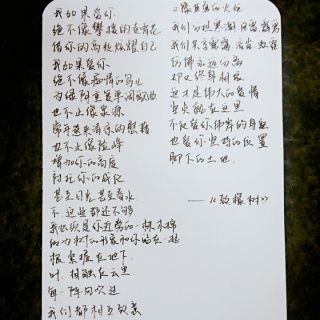 我如果爱你
绝不像攀援的凌霄花
借你的高枝炫耀自己
我如果爱你
绝不像痴情的鸟儿
为绿荫重复单调的歌曲
也不止像泉源
常年送来清凉的慰藉
也不止像险峰
增加你的高度
衬托你的威仪
甚至日光 甚至春水
不 这些都还不够
我必须是你近旁的一株木棉
做为树的形象和你站在一起
根 紧握在地下
叶 相融在云里
每一阵风吹过
我们都相互致意
又像英勇的火炬
我们分担寒潮 风雷 霹雳
我们共享雾霭 流岚 虹霓
仿佛永远分离
却又终身相依
这才是伟大的爱情
坚贞就在这里
不仅爱你伟岸的身躯
也爱你坚持的位置
脚下的土地
——《致橡树》